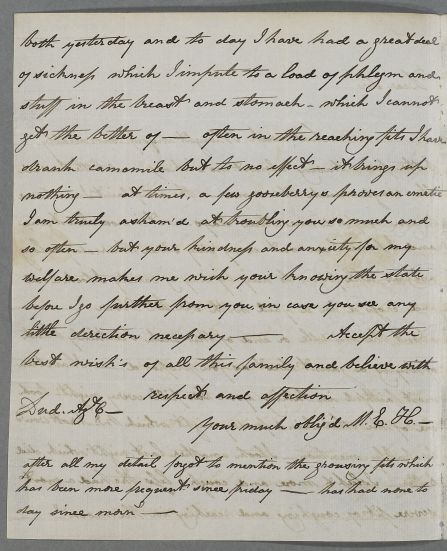 both yesterday and to day I have had a great deal
of sickness which I impute to a load of phlegm and
stuff in the breast and stomach - which I cannot
get the better of — often in the reaching fits I have
drank camomile but to no effect - it brings up
nothing — at times, a few gooseberrys proves an emetic
I am truly asham'd at troubling you so much and
so often - but your kindness and anxiety for my
welfare makes me wish your knowing the state
before I go further from you, in case you see any
little derection necessary — Accept the
best wish's of all this family and believe with
respect and affection
Your much oblig'd M. E. H. —
after all my detail forgot to mention the grousing fits which
has been more frequent since friday — has had none to
day since morn' —